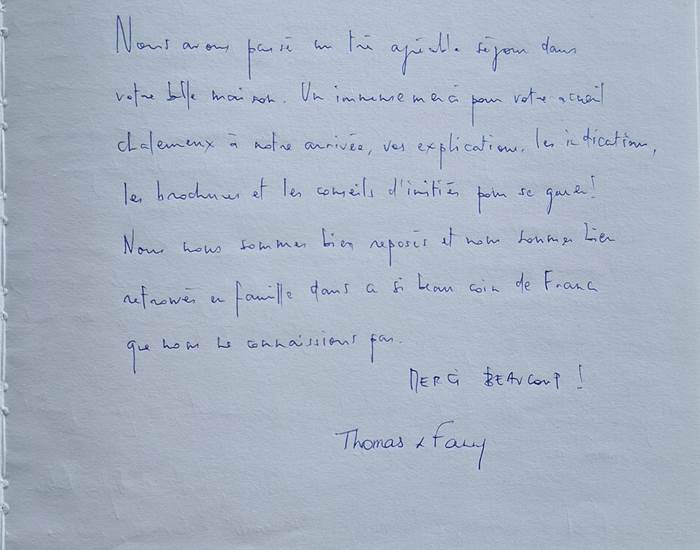 Nous avons passé un très agréable séjour dans
votre belle maison. Un immense merci pour votre accueil
chaleureux à notre arrivée, vos explications, les indications,
les brochures et les conseils d'initiés pour se garer !
Nous nous sommes bien reposés et nous sommes bien
retrouvés en famille dans ce si beau coin de France
que nous ne connaissions pas.
MERCI BEAUCOUP !
Thomas & Fanny